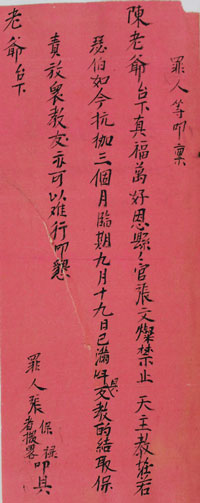 罪人等叩稟
陳老爺台下真福萬好恩縣之官張文燦禁止 天主教崔若
瑟伯如今抗枷三個月臨期九月十九日已滿 具文教的結取保
責放衆教友亦可以难行叩懇
老爺台下
罪人張保祿 叩具